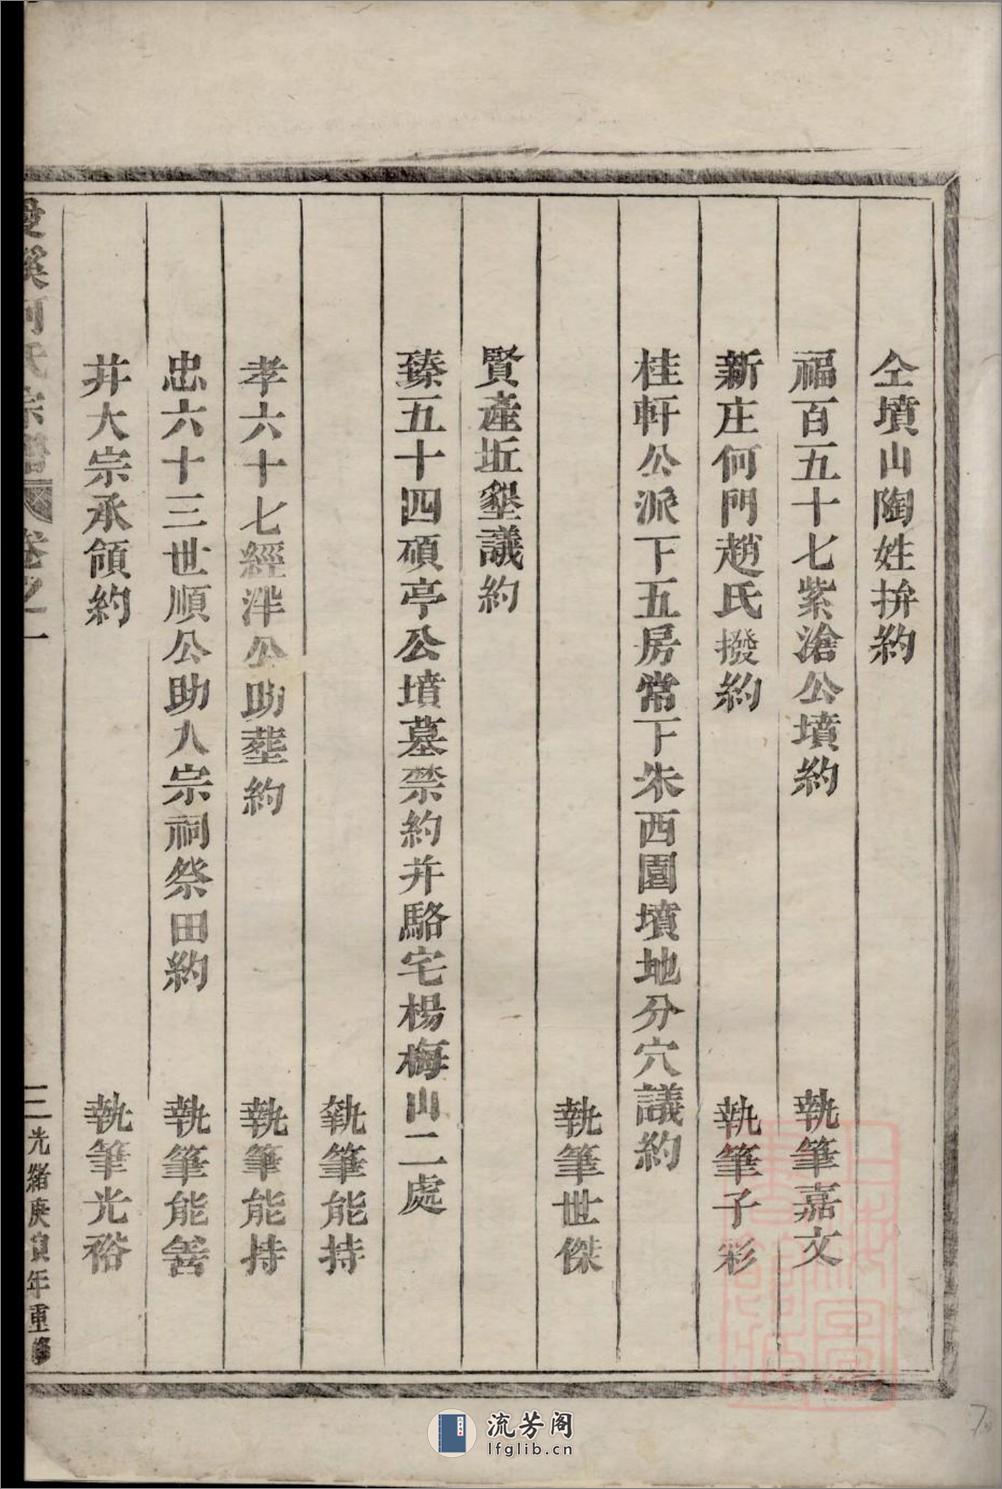 仝墳山陶姓拚約
福百五十七紫滄公墳約 執筆嘉文
新庄何門趙氏撥約 執筆子彩
桂軒公派下五房常下朱西園墳地分穴議約
執筆世傑
賢產坵墾議約
臻五十四碩亭公墳墓禁約并駱宅楊梅山二處
執筆能持
孝六十七經泮公助塟約 執筆能持
忠六十三世順公助入宗祠祭田約 執筆能善
并大宗承領約 執筆光裕
溪何氏宗譜 卷之一 三 光緒庚寅年重修
流芳阁
lfglib.cn